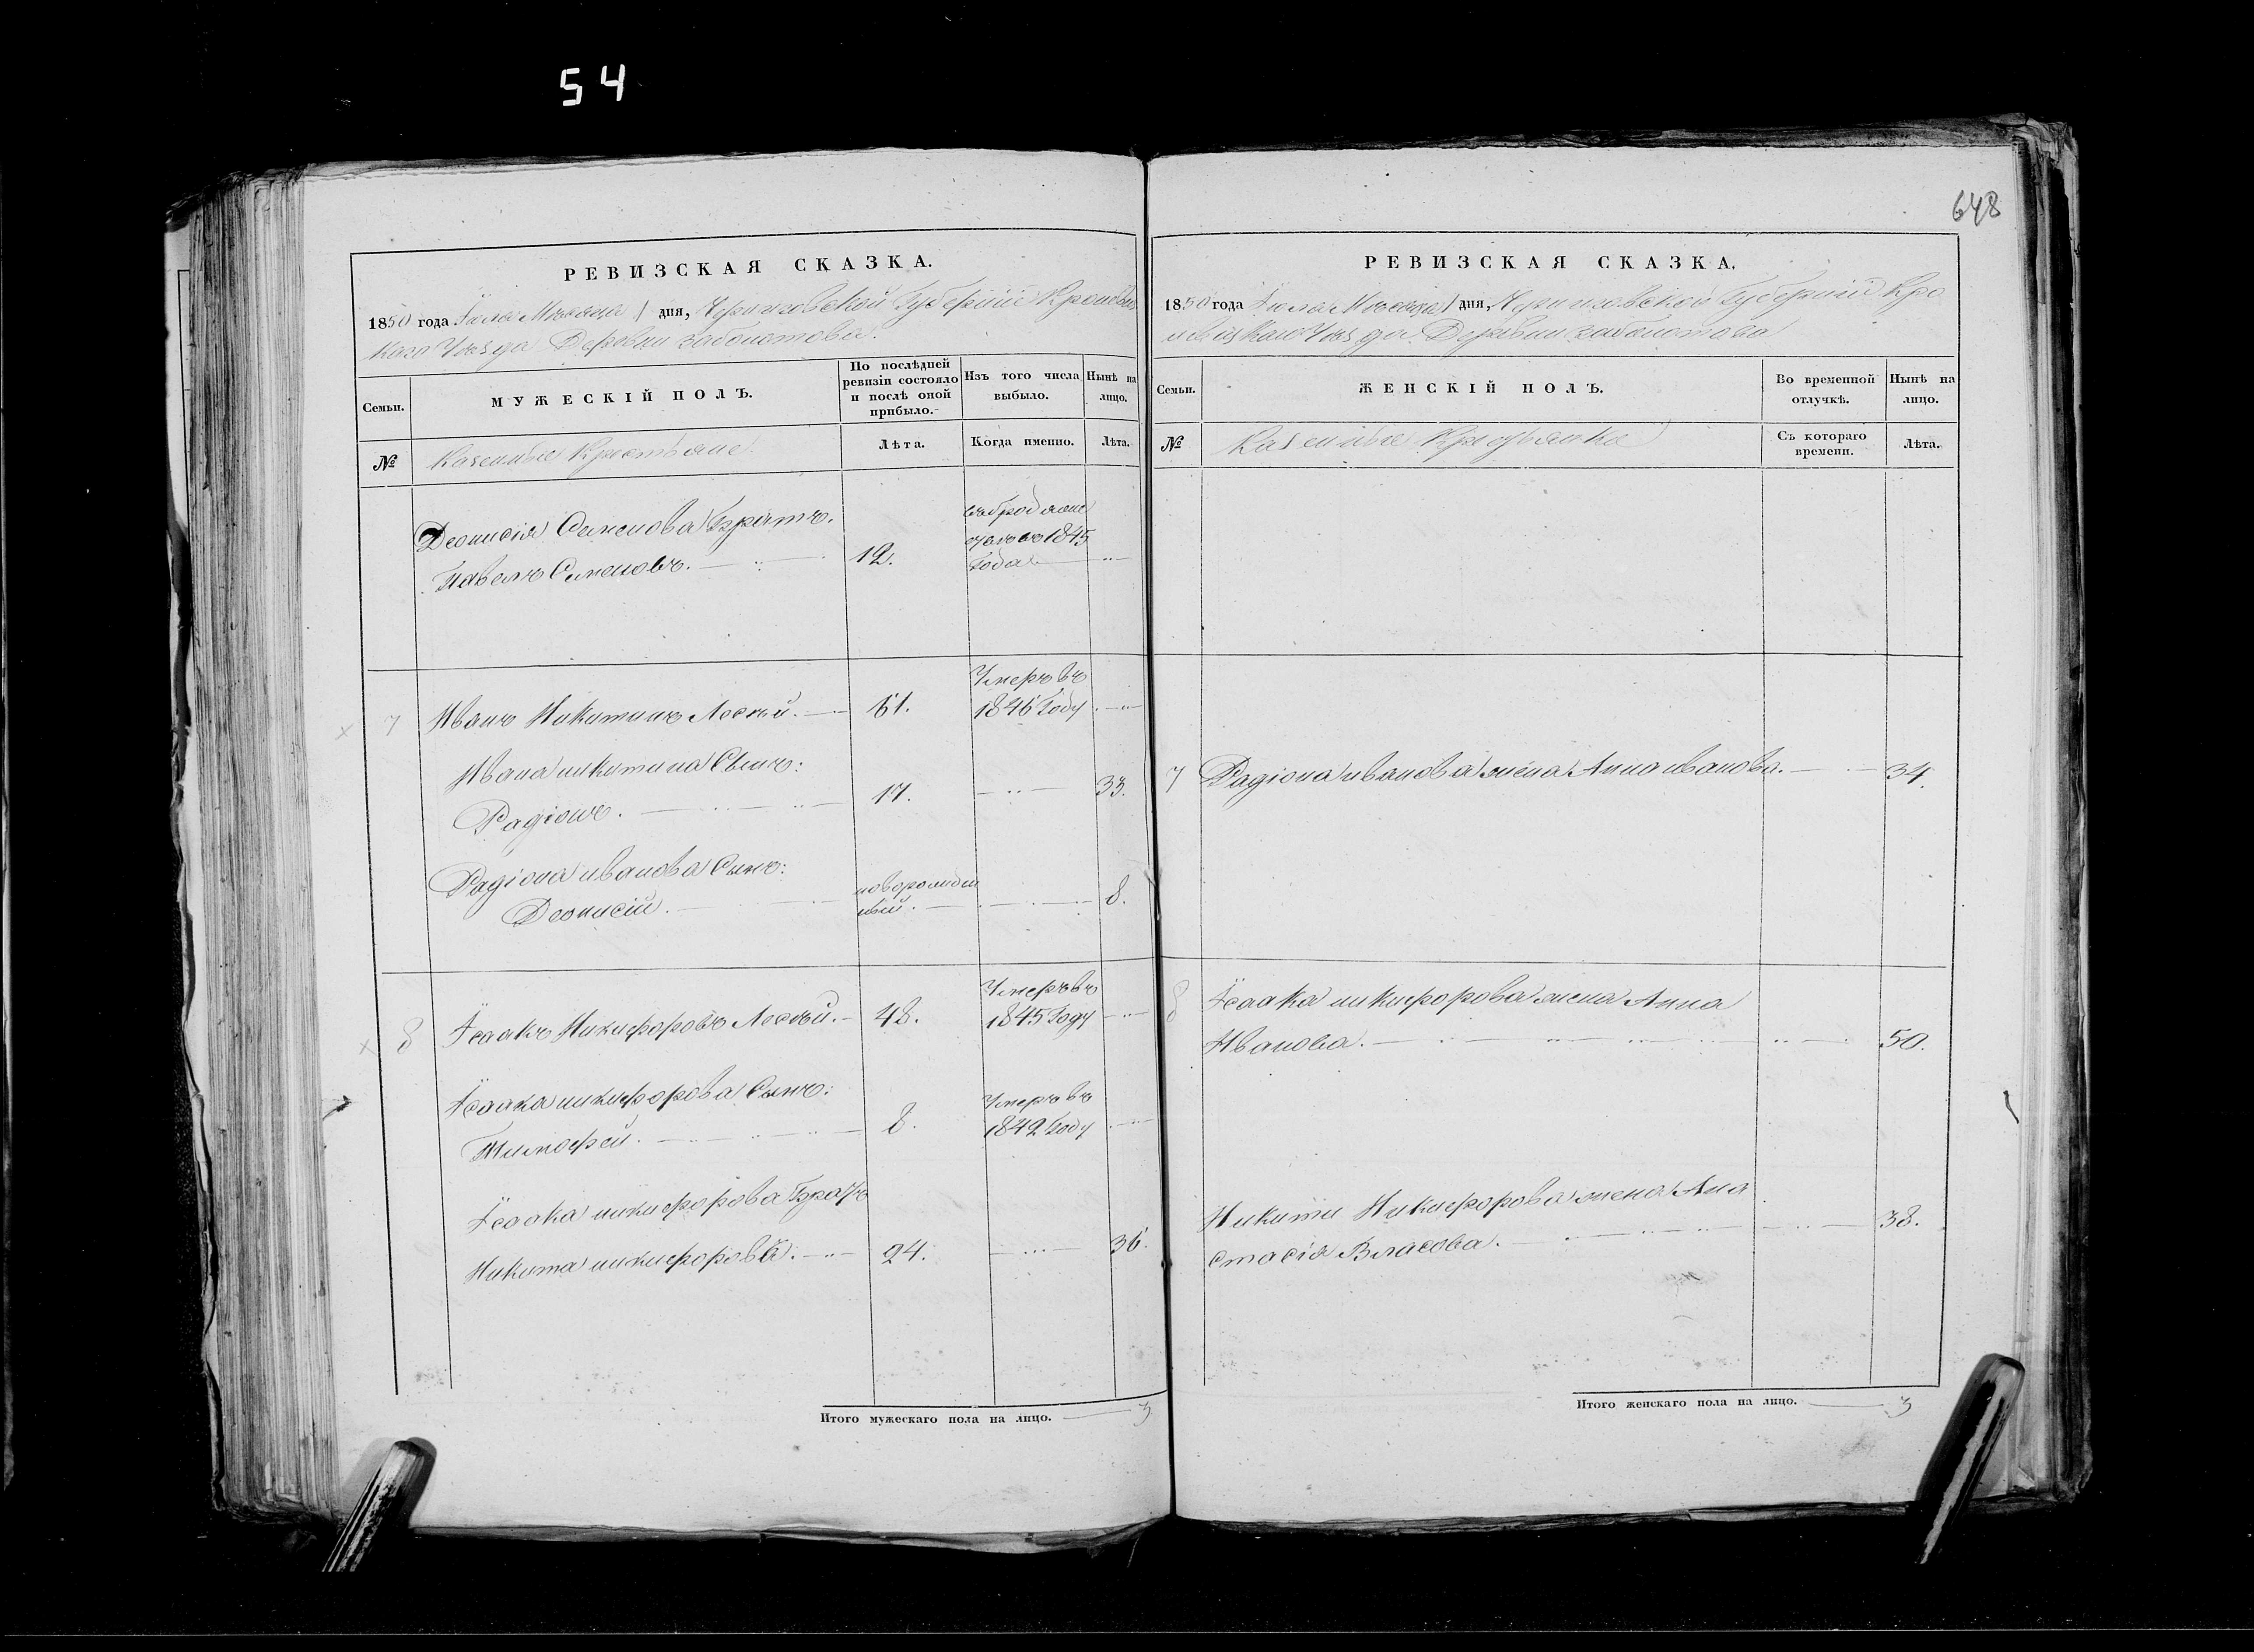 54
648
РЕВИЗСКАЯ СКАЗКА.
1850 года Іюля Мѣсяца 1 дня, Черниговской Губерніи Кролевец
каго Уѣзда Деревни Заболотова.
Семьи.
МУЖЕСКІЙ ПОЛЪ.
По послѣдней ревизіи состояло и послѣ оной прибыло.
Изъ того числа выбыло.
Нынѣ на лицо.
№
Казенные Крестьяне
Лѣта.
Когда именно.
Лѣта.
Деонисія Семенова Братъ.
Павелъ Семеновъ. 12. 1845 года
7 Иванъ Никитинъ Лоскій. 61. Умеръ въ 1846 Году
Ивана никитина Сынъ:
Радіонъ. 17. 33.
Радіона иванова Сынъ:
Деонисій. новорожден ный. 8.
8 Ісаакъ Никифоровъ Лоскій. 48. Умеръ въ 1845 Году
Ісаака никифорова Сынъ:
Тимофей. 8. Умеръ въ 1842 Году
Ісаака никифорова Братъ
Никита никифоровъ. 24. 36.
Итого мужескаго пола на лицо. 3
РЕВИЗСКАЯ СКАЗКА.
1850 года Іюля Мѣсяца 1 дня, Черниговской Губерніи Кро
левецкаго Уѣзда Деревни Заболотова
Семьи.
ЖЕНСКІЙ ПОЛЪ.
Во временной отлучкѣ.
Нынѣ на лицо.
№
Казенные Крестьянка
Съ котораго времени.
Лѣта.
7 Радіона иванова жена Анна иванова. 34.
8 Ісаака никифорова жена Анна
Иванова. 50.
Никиты Никифорова жена Ана
стасія Власова. 38.
Итого женскаго пола на лицо. 3